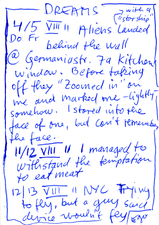 DREAMS
with a
"starship"
4/5 VIII " Aliens landed
Do Fr
behind the wall
@ Germaniastr. 7a Kitchen
window. Before taking
off they "zoomed in" on
me and marked me - lightly
somehow. I stored into the
face of one, but can't remember
the face.
11/12 VIII " I managed to
withstand the temptation
to eat meat
12/13 VIII " NYC Trying
to fly, but a guy said
device wouldn't fly